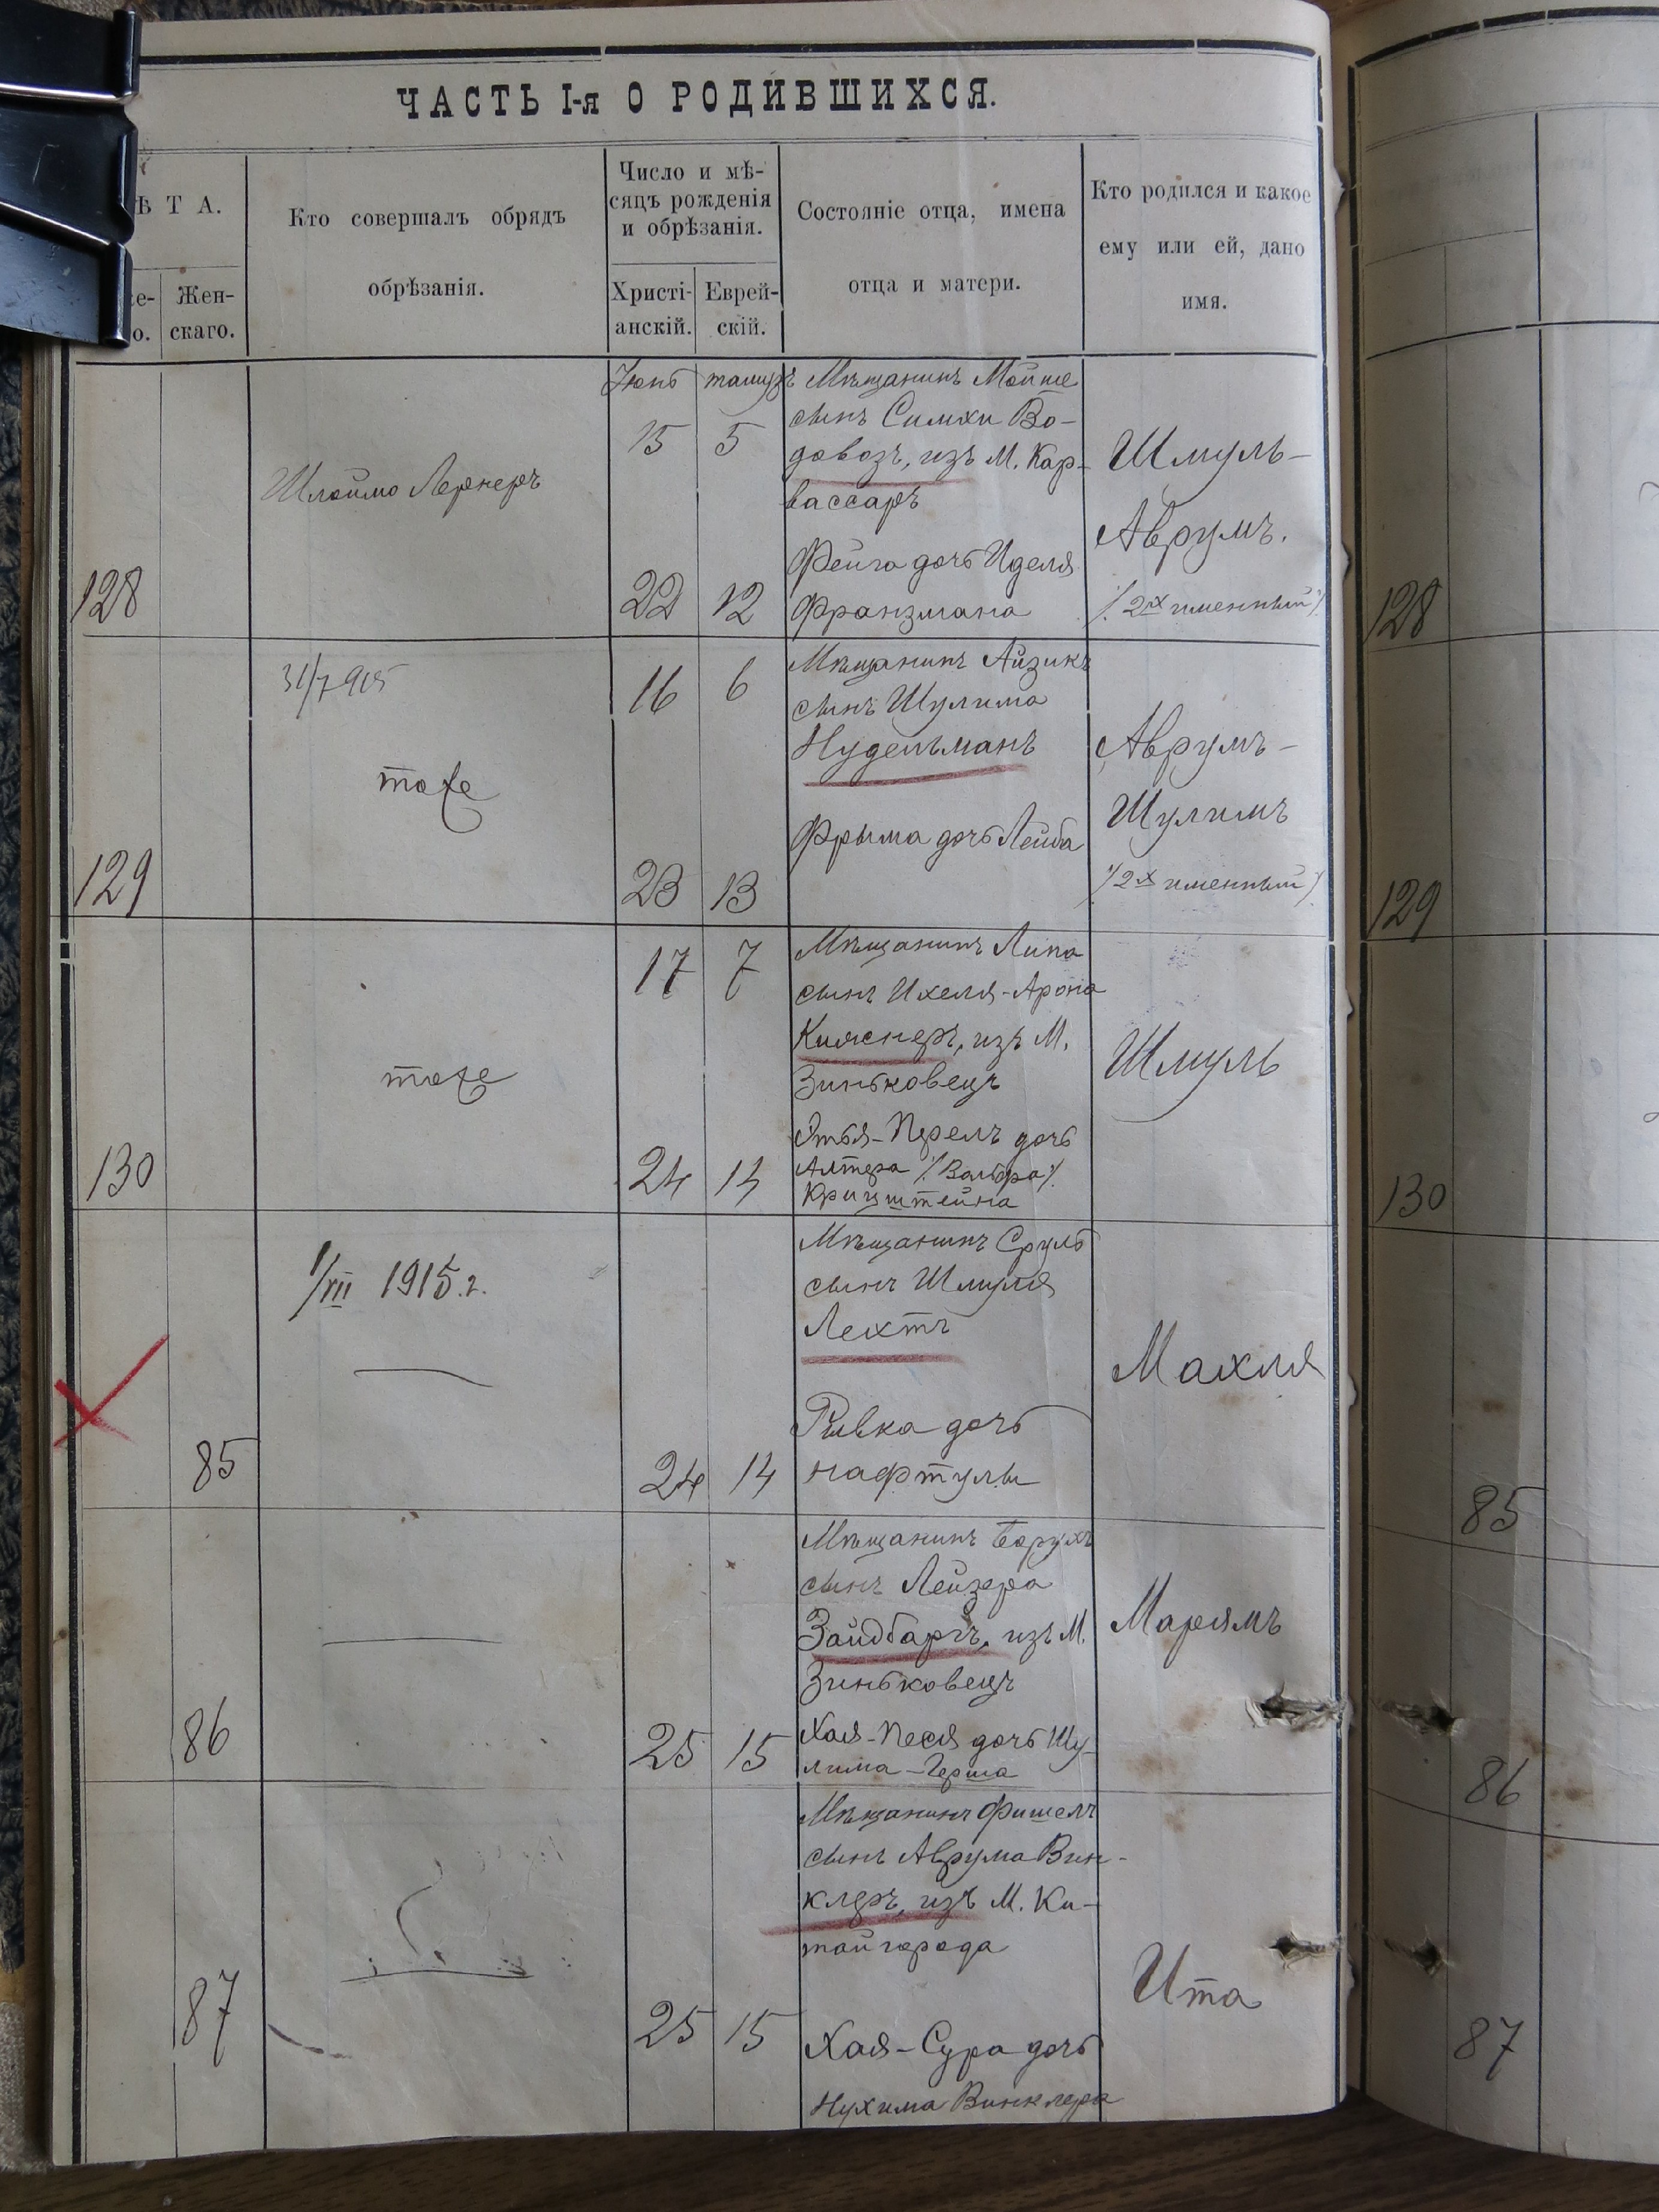 ЧАСТЬ I-я О РОДИВШИХСЯ.
Ѣ Т А.
Жен-
скаго.
Кто совершалъ обрядъ
обрѣзанія.
Число и мѣ-
сяцъ рожденія
и обрѣзанія.
Христі-
анскій.
Еврей-
скій.
Состояніе отца, имена
отца и матери.
Кто родился и какое
ему или ей, дано
имя.
128
Шлоймо Лернеръ
Іюнь тамузъ
15 5
22 12
Мѣщанинъ Мойше
сынъ Симхи Во-
довозъ, изъ М. Кар-
вассаръ
Фейга дочь Иделя
Франзмана
Шмуль-
Аврумъ.
/. 2хъ именный /.
128
129
31/7 915
тоже
16 6
23 13
Мѣщанинъ Айзикъ
сынъ Шулима
Нудельманъ
Фрыма дочь Лейба
Аврумъ-
Шулимъ
/. 2хъ именный /.
129
130
тоже
17 7
24 14
Мѣщанинъ Липа
сынъ Ихеля-Арона
изъ М.
Зиньковецъ
дочь
Алтера /. Вольфа /.
Шмуль
130
1/VII 1915 г.
85
24 14
Мѣщанинъ Сруль
сынъ Шмуля
Лехтъ
Рывка дочь
Нафтулы
Махля
85
86
25 15
Мѣщанинъ Борухъ
сынъ Лейзера
Зайдбаргъ, изъ М.
Зиньковецъ
Хая-Песя дочь Шу-
лима-Герша
Марямъ
86
87
25 15
Мѣщанинъ Фишель
сынъ Аврума Вин-
клеръ, изъ М. Ки-
тайгорода
Хая-Сура дочь
Нухима Винклера
Ита
87